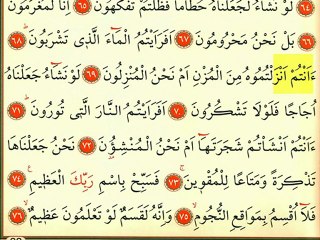 ﴿٦٤﴾ لَوْ نَشَٓاءُ لَجَعَلْنَاهُ حُطَامًا فَظَلْتُمْ تَفَكَّهُونَ ﴿٦٥﴾ اِنَّا لَمُغْرَمُونَ
﴿٦٦﴾ بَلْ نَحْنُ مَحْرُومُونَ ﴿٦٧﴾ اَفَرَاَيْتُمُ الْمَٓاءَ الَّذِى تَشْرَبُونَ ﴿٦٨﴾
ءَاَنْتُمْ اَنْزَلْتُمُوهُ مِنَ الْمُزْنِ اَمْ نَحْنُ الْمُنْزِلُونَ ﴿٦٩﴾ لَوْ نَشَٓاءُ جَعَلْنَاهُ
اُجَاجًا فَلَوْلَا تَشْكُرُونَ ﴿٧٠﴾ اَفَرَاَيْتُمُ النَّارَ الَّتِى تُورُونَ ﴿٧١﴾
ءَاَنْتُمْ اَنْشَاْتُمْ شَجَرَتَهَٓا اَمْ نَحْنُ الْمُنْشِؤُنَ ﴿٧٢﴾ نَحْنُ جَعَلْنَاهَا
تَذْكِرَةً وَمَتَاعًا لِلْمُقْوِينَ ﴿٧٣﴾ فَسَبِّحْ بِاسْمِ رَبِّكَ الْعَظِيمِ ﴿٧٤﴾
فَلَٓا اُقْسِمُ بِمَوَاقِعِ النُّجُومِ ﴿٧٥﴾ وَاِنَّهُ لَقَسَمٌ لَوْ تَعْلَمُونَ عَظِيمٌ ﴿٧٦﴾